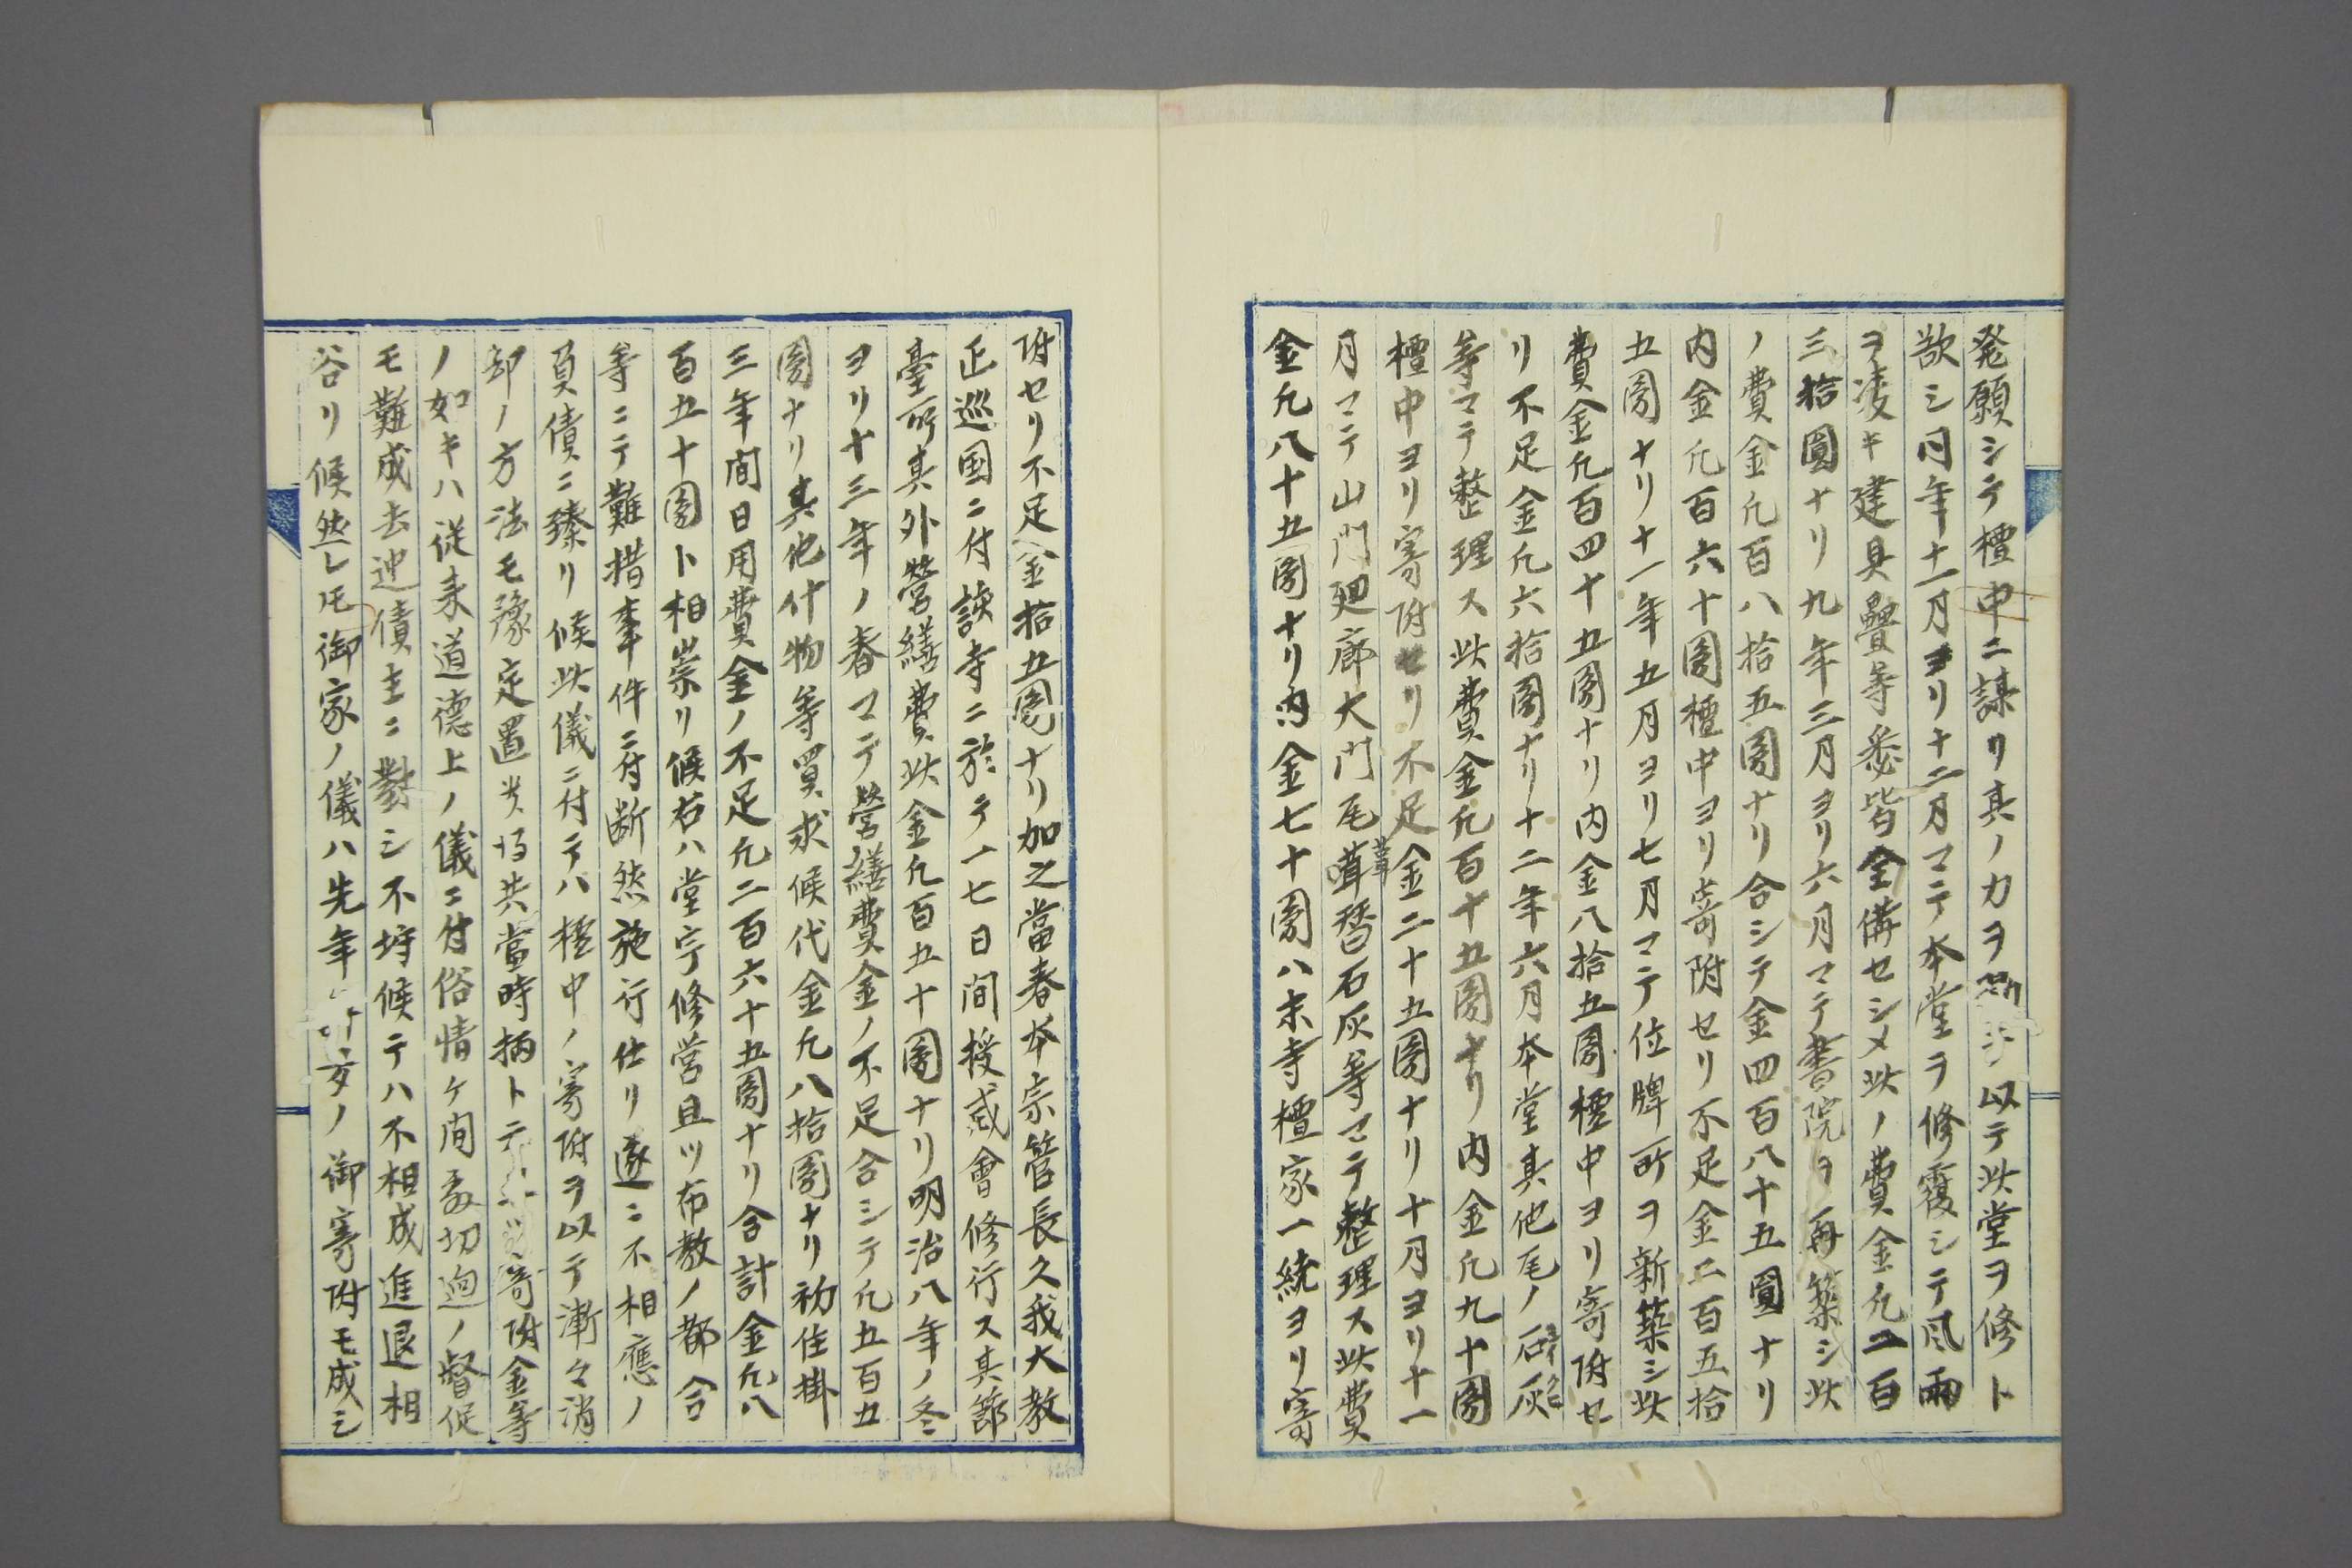 発願シテ檀中ニ謀リ其ノ力ヲ以テ此堂ヲ修ト
欲シ同年十一月ヨリ十二月マテ本堂ヲ修覆シテ風雨
ヲ凌キ建具疊等悉皆全備セシメ此ノ費金凢二百
三拾圓ナリ九年三月ヨリ六月マテ書院ヲ再築シ此
ノ費金凢百八拾五圓ナリ合シテ金四百八十五圓ナリ
内金凢百六十圓檀中ヨリ寄附セリ不足金二百五拾
五圓ナリ十一年五月ヨリ七月マテ位牌所ヲ新築シ此
費金凢百四十五圓ナリ内金八拾五圓檀中ヨリ寄附セ
リ不足金凢六拾圓ナリ十二年六月本堂其他尾ノ石灰
等マテ整理ス此費金凢百十五圓ナリ内金凢九十圓
檀中ヨリ寄附セリ不足金二十五圓ナリ十月ヨリ十一
月マテ山門廻廊大門尾葺替石灰等マテ整理ス此費
金凢八十五圓ナリ内金七十圓八末寺檀家一統ヨリ寄
附セリ不足金拾五圓ナリ加之當春本宗管長久我大教
正巡国ニ付該寺ニ於テ一七日間授戒會修行ス其節
臺所其外營繕費此金凢百五十圓ナリ明治八年ノ冬
ヨリ十三年ノ春マテ營繕費金ノ不足合シテ凢五百五
圓ナリ其他什物等買求候代金凢八拾圓ナリ初住掛
三年間日用費金ノ不足凢二百六十五圓ナリ合計金凢八
百五十圓ト相崇リ候右ハ堂宇修営且ツ布教ノ都合
等ニテ難措事件ニ付断然施行仕リ遂ニ不相應ノ
負債ニ臻リ候此儀ニ付テハ檀中ノ寄附ヲ以テ漸々消
却ノ方法モ豫定置候得共當時柄トテ寄附金等
ノ如キハ従来道徳上ノ儀ニ付俗情ケ間敷切迫ノ督促
モ難成去迚債主ニ對シ不埒候テハ不相成進退相
谷リ候然レ𪜈御家ノ儀ハ先年ノ御寄附モ成シ